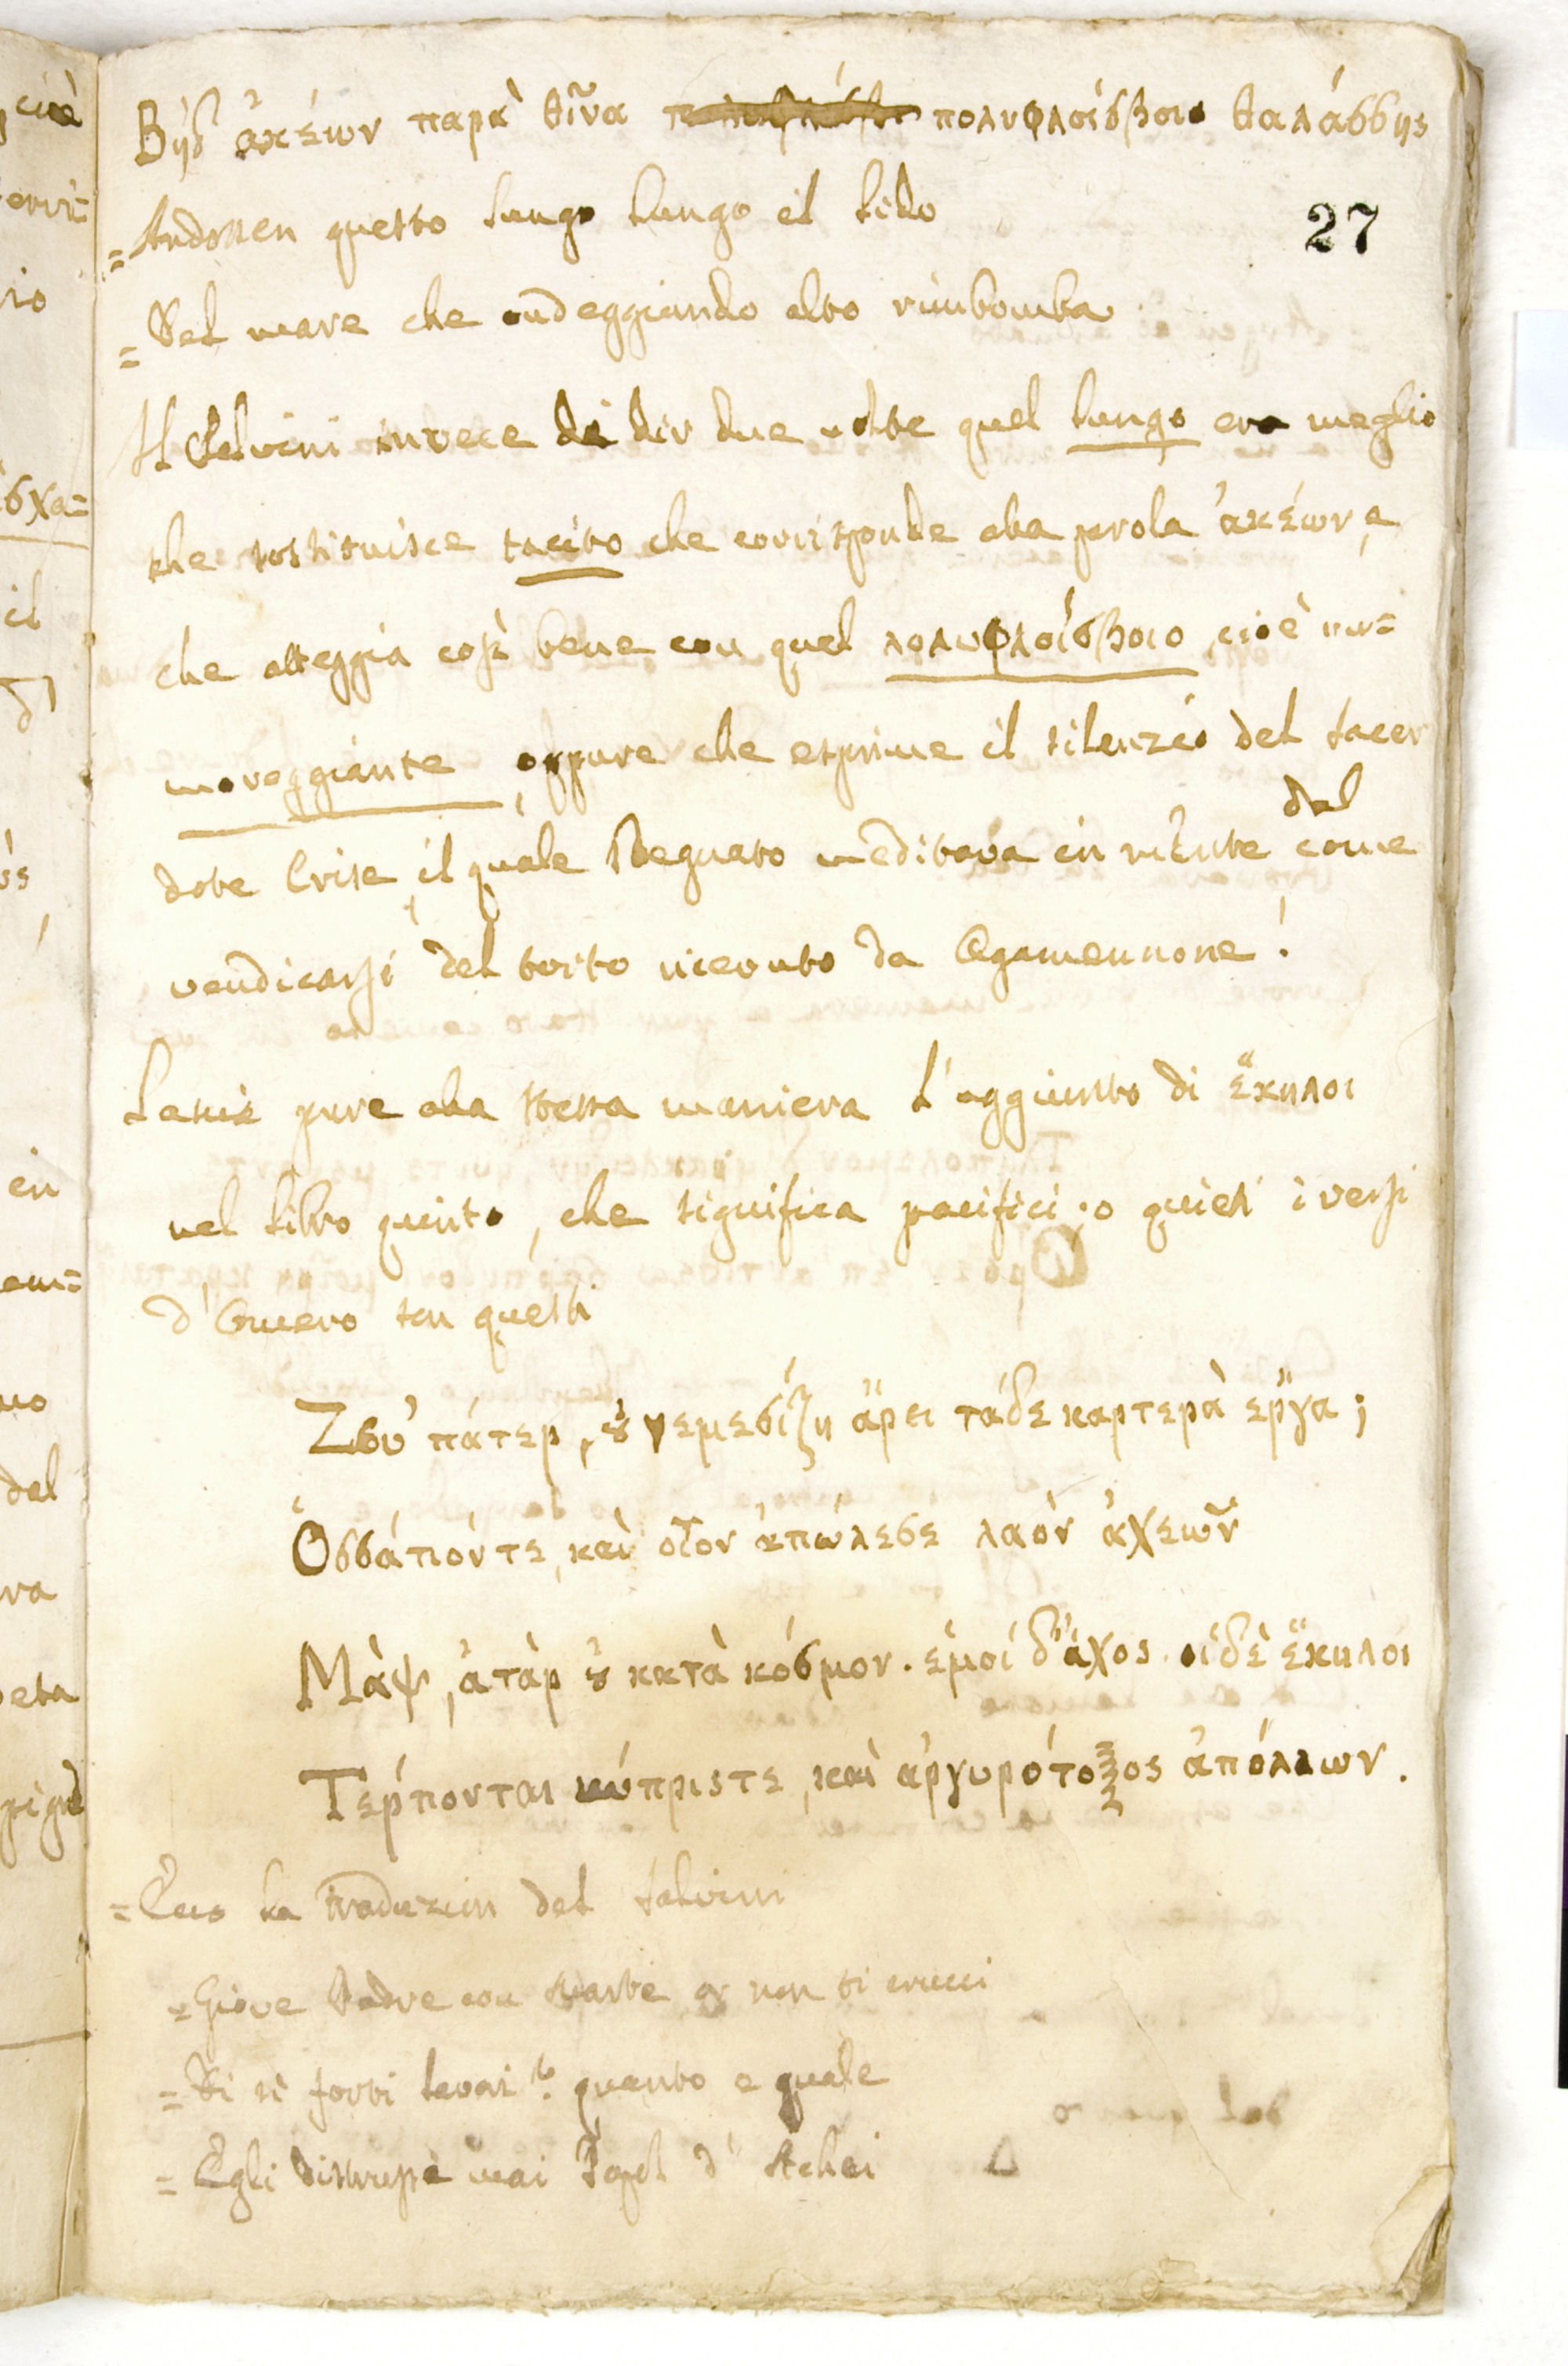 Βῆδ ἀκέων παρὰ θῖνα πολυφλοίσβοιο θαλάσσης
27
=Andossen quetto lungo lungo il lido
=Del mare che ondeggiando alto rimbomba
Il Salvini invece di dir due volte quel lungo era meglio
che sostituisce tacito che corrisponde alla prola ἀκέων, e
che atteggia così bene con quel πολυφλοίσβοιο, cioè ru=
moreggiante, oppure che esprime il silenzio del sacer
dote Crise, il quale sdegnato meditava in mente come
dal
vendicarsi del torto ricevuto da Agamennone!
Lascia pure alla stessa maniera l'aggiunto di ἕκηλοι
nel libro quinto, che significa pacifici, o quieti i versi
d'Omero son questi
Ζεῦ πάτερ, ȣ̓ νεμεσίζη ἄρει τάδε καρτερὰ ἔργα;
Ὁσσάτιόντε, καὶ οἷον ἀπώλεσε λαὸν ἀχεῶν
Μὰψ, ἀτὰρ ȣ̓ κατὰ κόσμον. ἐμοί δ' ἄχος. οἱ δὲ ἕκηλοι
Τέρπονται κύπριστε, καὶ ἀργυρότοξος ἀπόλλων.
=Ecco la traduzion del Salvini
=Giove Padre con Marte or non ti crucci
=Di sì forti lavori? quanto e quale
=Egli disrruppe mai Popol d'Achei